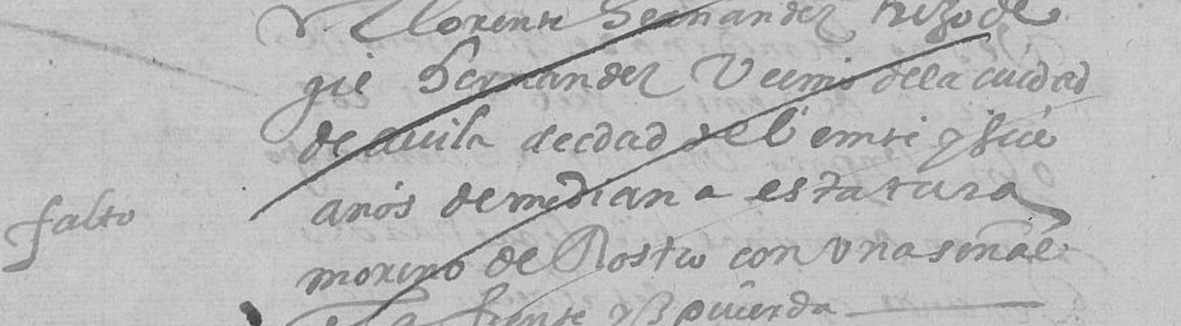 Llorente hernandez hijo de
gil hernandez Vecino de la ciudad
de avila de edad de beinte y seis
años de mediana estatura
falto
moreno de Rostro con una señal
en la frente yzquierda